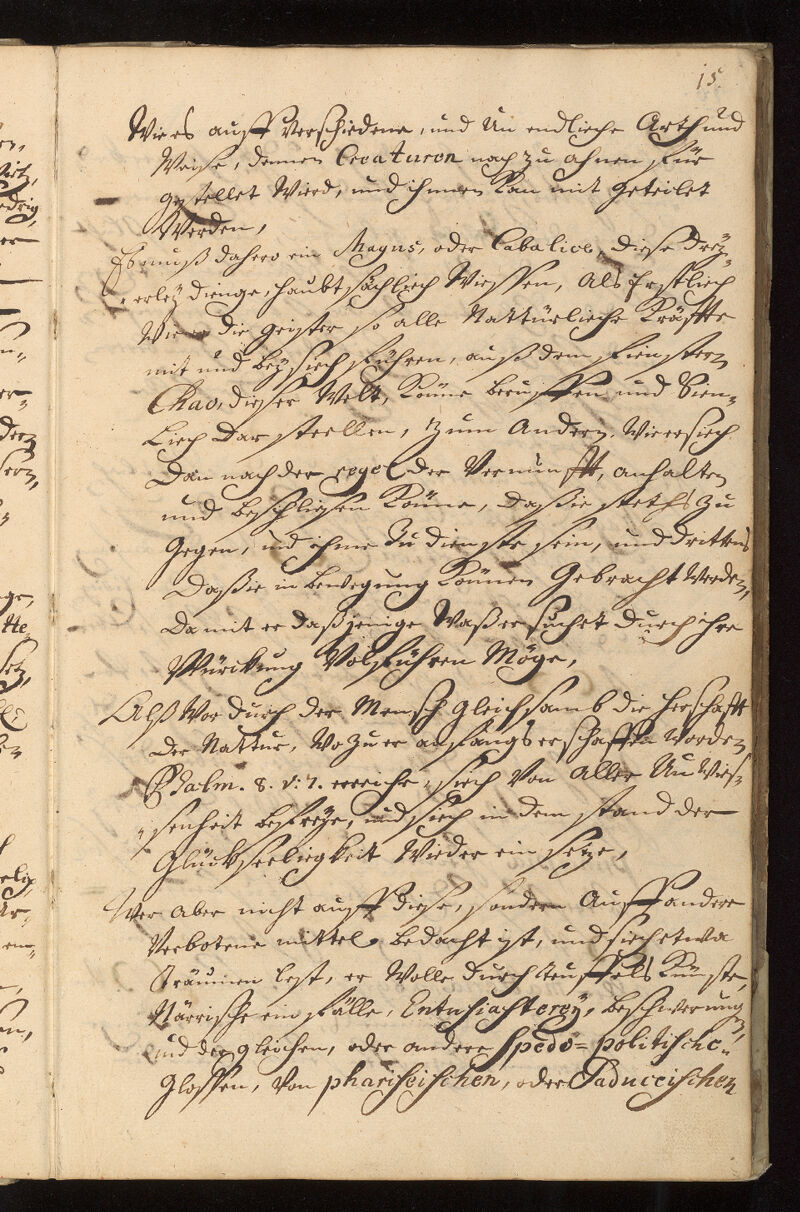 15
Wie es auff verschiedene, und Un endlieche Arth und
Weise, dennen Creaturen nach zu ahnen für
gestellet Wierd, und ihmen kan mit geteilet
Werden,
Es muß dahero ein Magus, oder Cabalicus, diese drey
erley dienge, haubtsächliech Wiessen, Als Erstliech
Wie er die geister so alle Nattürlieche Kräffte
mit und bey siech führen, auß dem fienstern
Chao, dieser Welt, könne beruffen und Sien-
Liech dar stellen, zum Andern, Wie er siech
Dan nach der regel der Vernunfft, anhalten
und beschliesen könne, daß sie stehts zu
gegen, und ihme zu dienste sein, und drittens
Daß sie in bewegung können gebracht Werden,
Da mit er daßjenige Waß er suchet durch ihre
Würckung Volführen Möge,
Alß Wo durch der Mensch gleichsamb die herschafft
der Nattur, Wo zu er anfangs erschaffen worden
Psalm. 8. v: 7. erreiche, siech Von Aller Un Wies-
senheit befreye, und siech in dem stand der
Glückseeliegkeit Wieder ein setze,
Wer Aber nicht auff diese, sondern Auff andere
Verbotene mittel bedacht ist, und siech etwa
träumen lest, er Wolle durch teuffels Künste,
Närrische ein fälle, Entusiasterey, beschwerung
und der gleichen, oder andere Spedo=politische
Glossen, Von phariseischen, oder Saduceischen